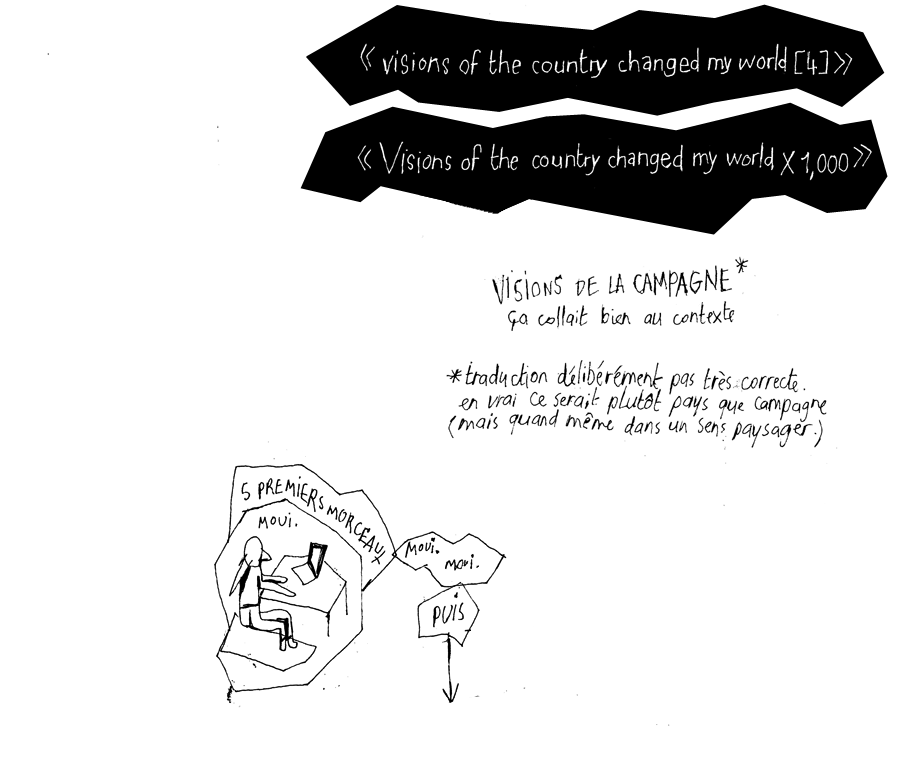 « visions of the country changed my world [4] »
« Visions of the country changed my world X 1,000 »
VISIONS DE LA CAMPAGNE*
ça collait bien au contexte
*traduction délibérément pas très correcte.
en vrai ce serait plutôt pays que campagne
(mais quand même dans un sens paysager.)
5 PREMIERS MORCEAUX
MOUI.
MOUI.
MOUI.
PUIS